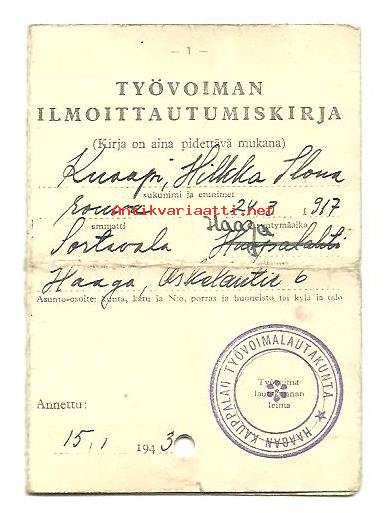 — 1 —
TYÖVOIMAN
ILMOITTAUTUMISKIRJA
(Kirja on aina pidettävä mukana)
Kuaapi, Hilkka Ilona
sukunimi ja etunimet
rouva 24.3 1917
Antikvariaatti.net
ammatti syntymäaika
Haaga
Sortavala Huopalahti
Haaga, Eskelantie 6
Asunto-osoite: kunta, katu ja N:o, porras ja huoneisto tai kylä ja talo
HAAGAN KAUPPALAN TYÖVOIMALAUTAKUNTA
Työvoimalautakunnan
leima
Annettu:
15.1 1943